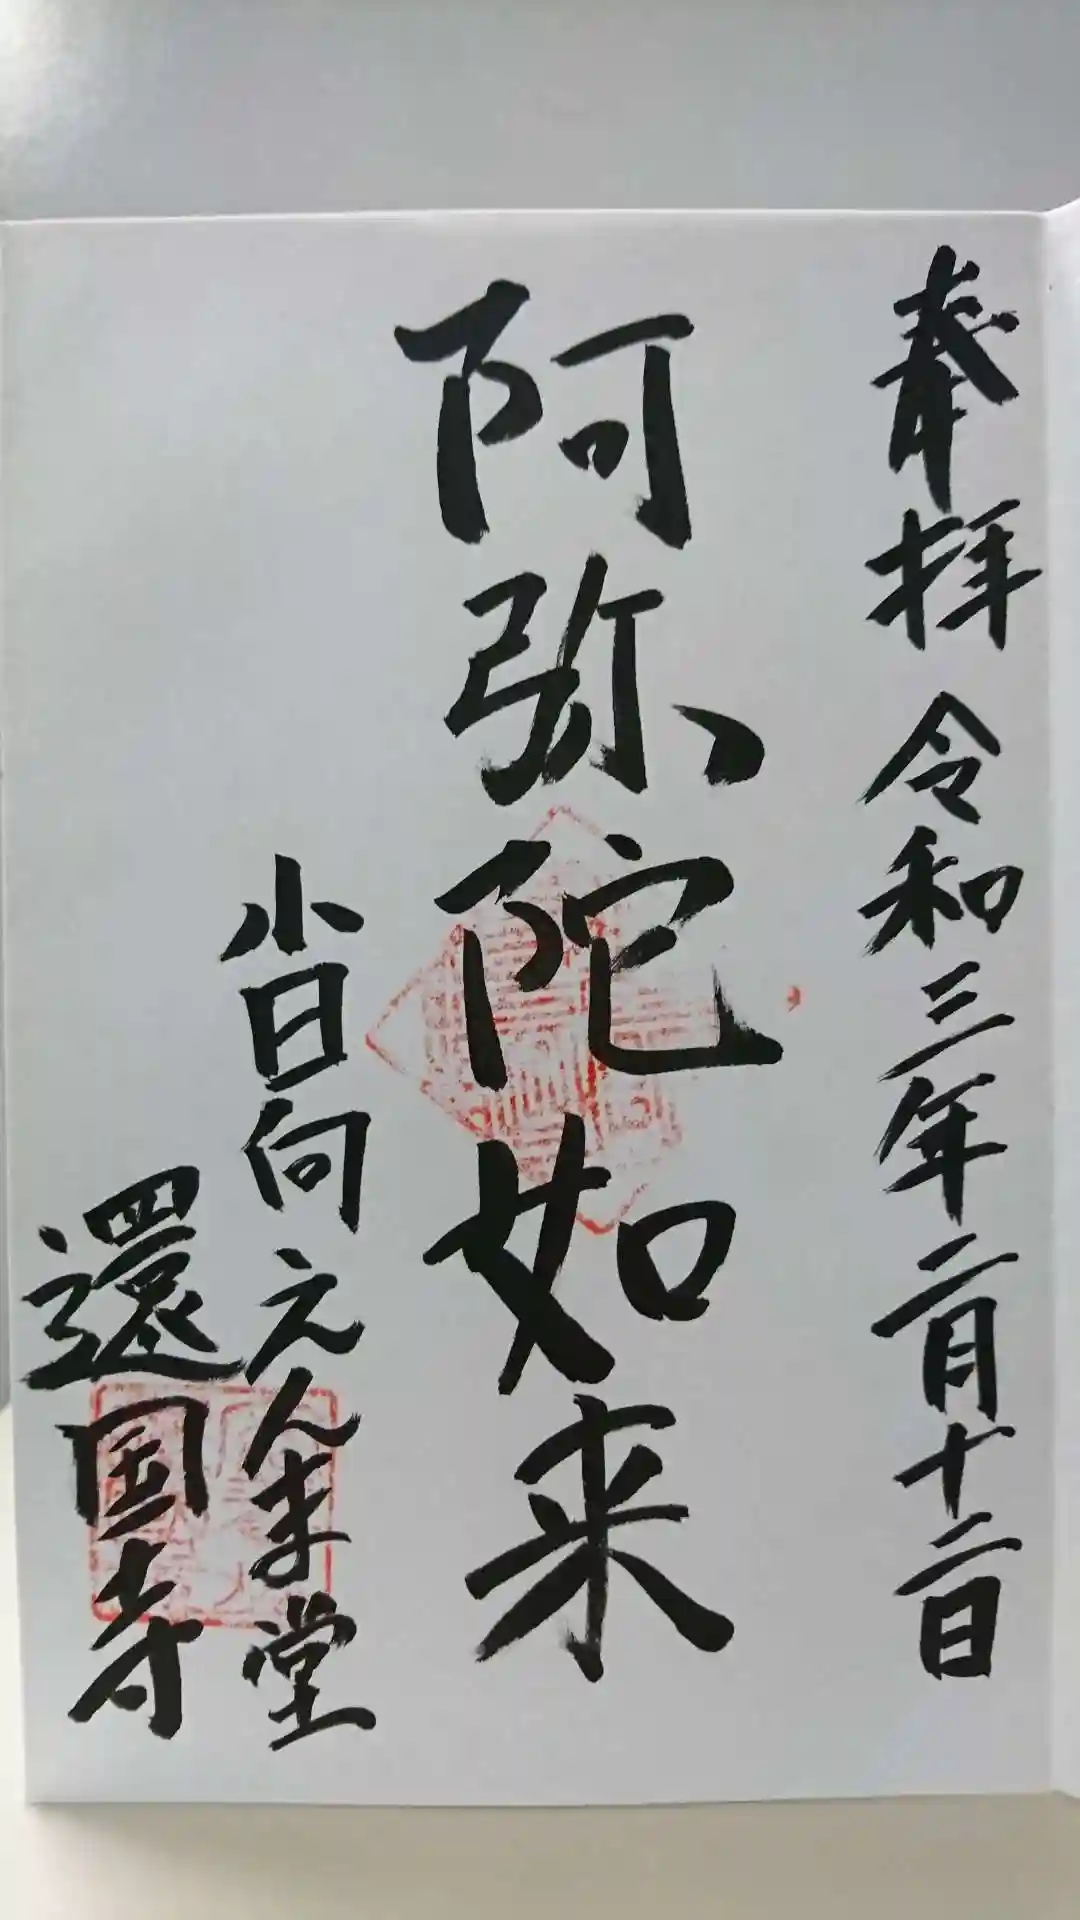 奉拝 令和三年二月十二日
阿弥陀如来
小日向 えんま堂
還国寺